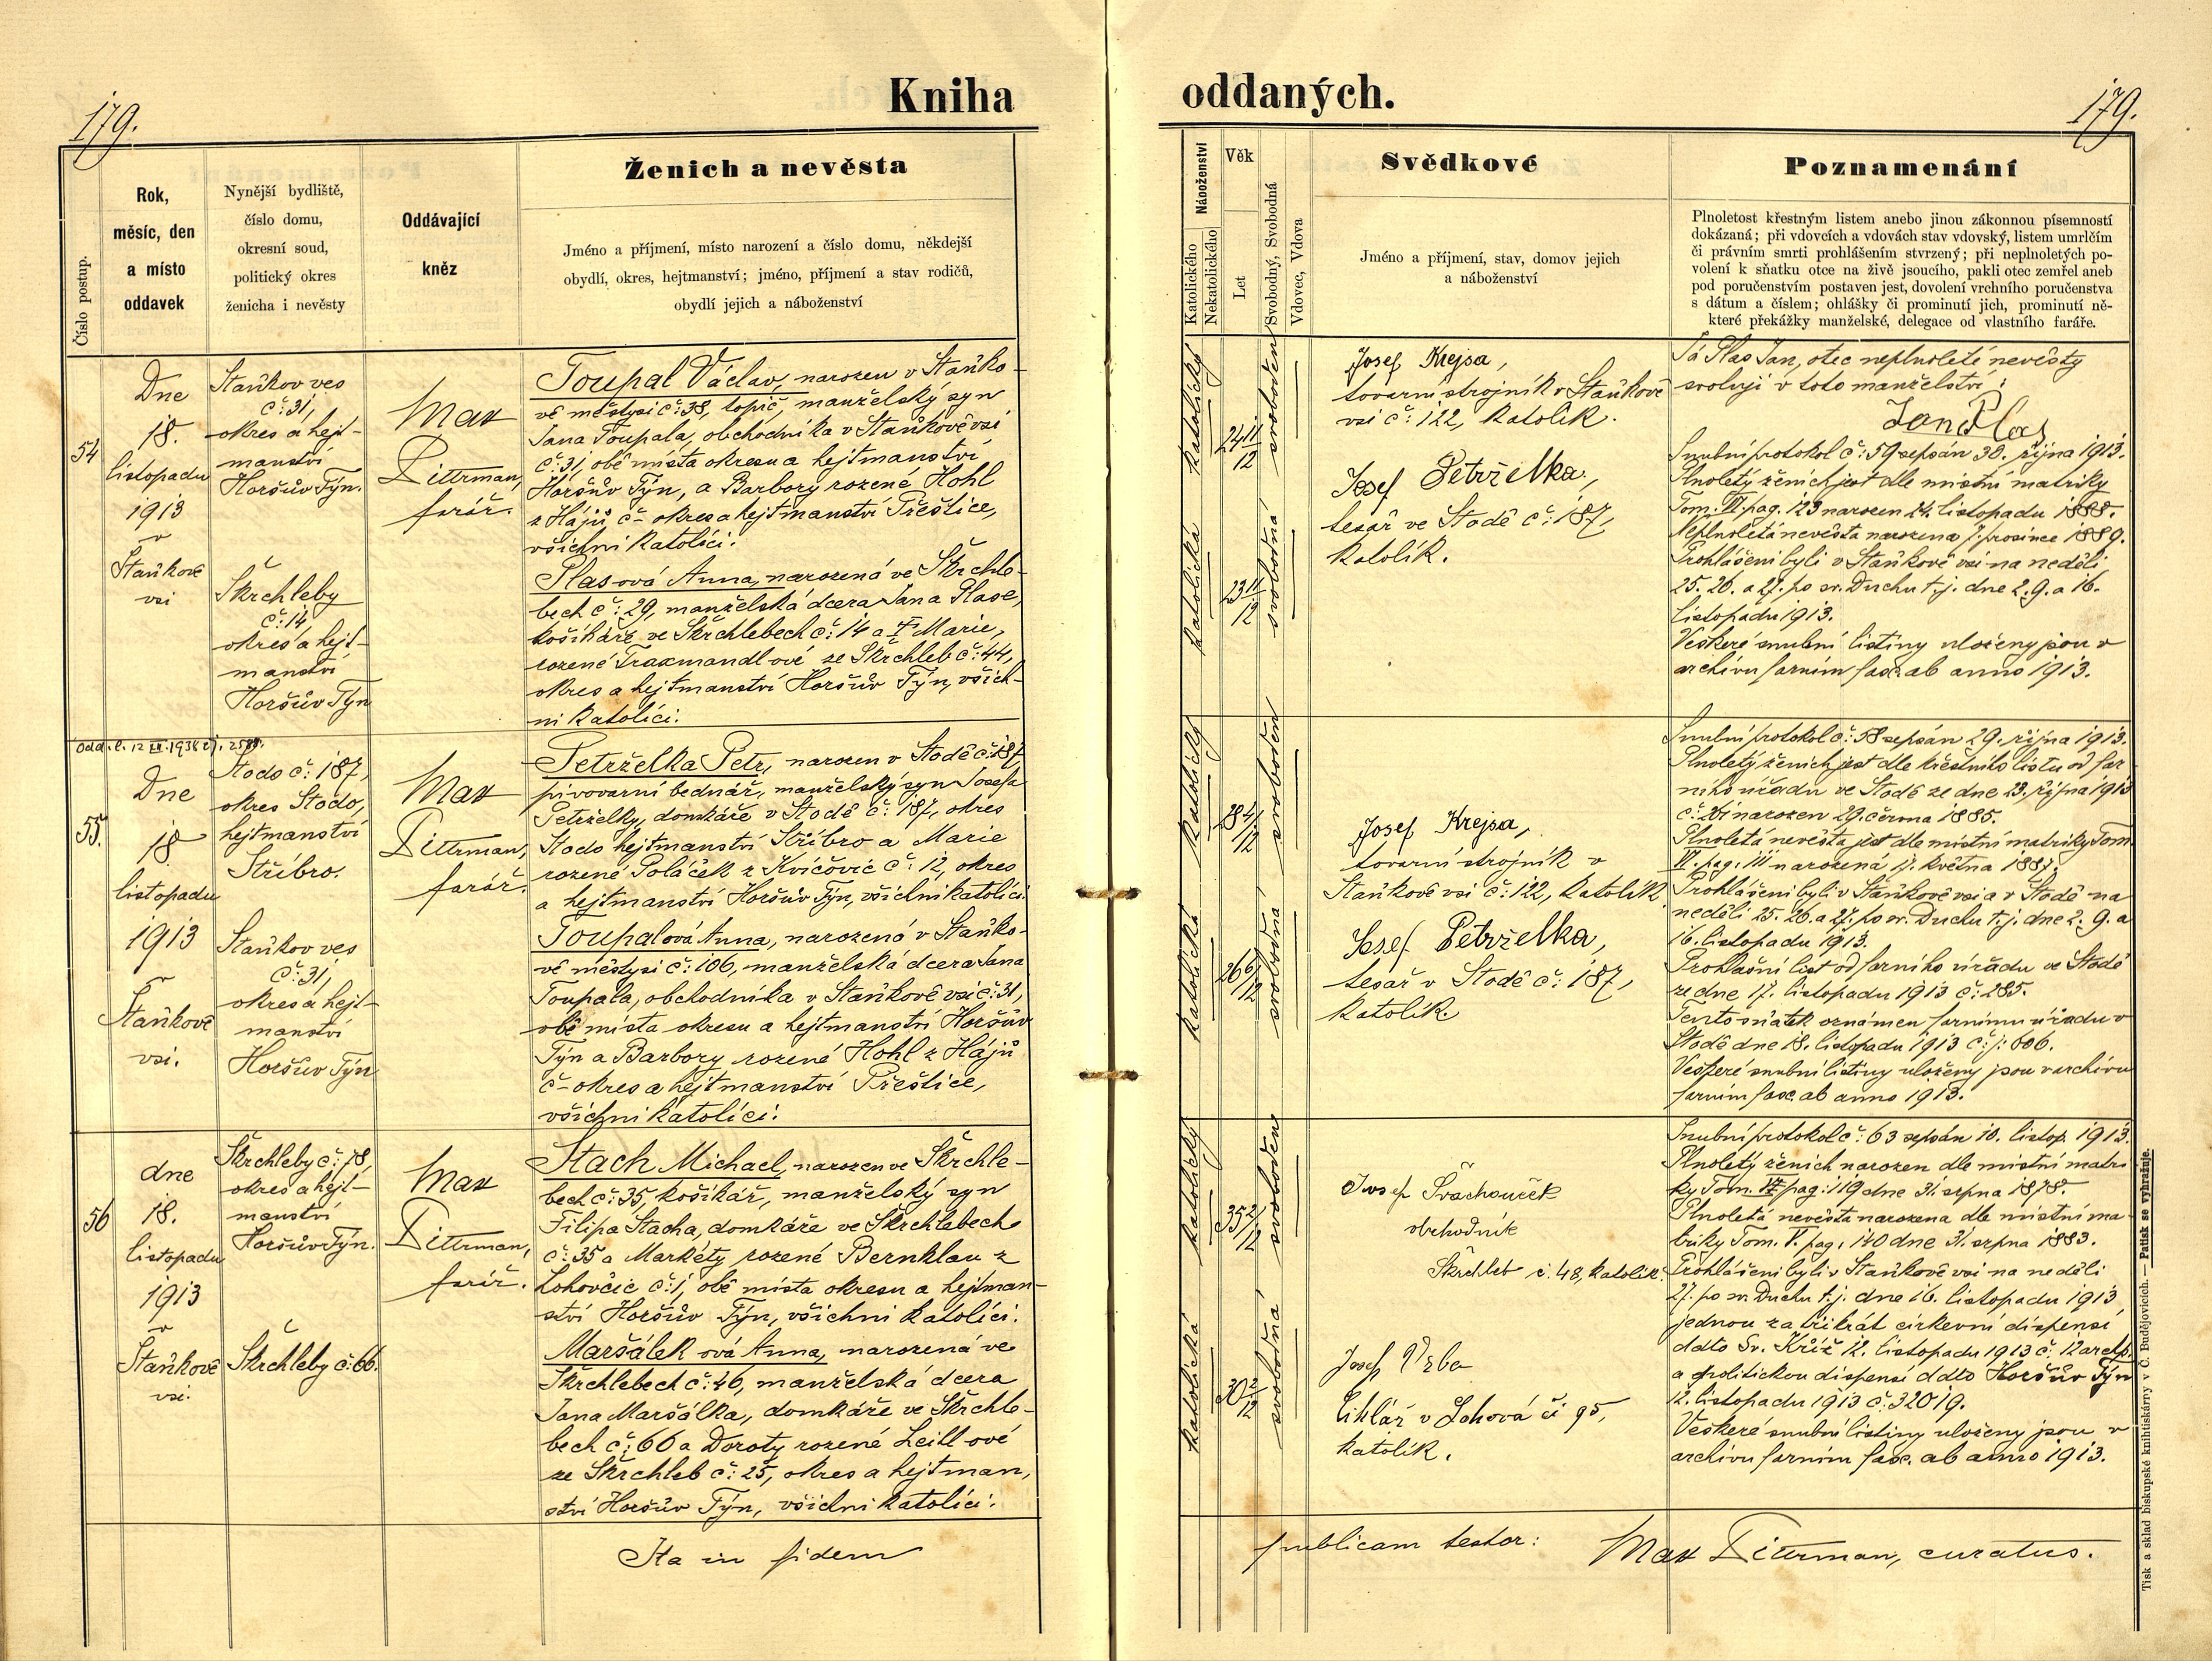 179.
Kniha
oddaných.
179.
Číslo postup.
Rok,
měsíc, den
a místo
oddavek
Nynější bydliště,
číslo domu,
okresní soud,
politický okres
ženicha i nevěsty
Oddávající
kněz
Ženich a nevěsta
Jméno a příjmení, místo narození a číslo domu, někdejší
obydlí, okres, hejtmanství; jméno, příjmení a stav rodičů,
obydlí jejich a náboženství
Náboženství
Katolického
Nekatolického
Věk
Let
Svobodný, Svobodná
Vdovec, Vdova
Svědkové
Jméno a příjmení, stav, domov jejich
a náboženství
Poznamenání
Plnoletost křestným listem anebo jinou zákonnou písemností
dokázaná; při vdovcích a vdovách stav vdovský, listem umrlčím
či právním smrti prohlášením stvrzený; při neplnoletých po-
volení k sňatku otce na živě jsoucího, pakli otec zemřel aneb
pod poručenstvím postaven jest, dovolení vrchního poručenstva
s dátum a číslem; ohlášky či prominutí jich, prominutí ně-
které překážky manželské, delegace od vlastního faráře.
54
Dne
18.
listopadu
1913
v
Staňkově
vsi
Staňkov ves
č: 31,
okres a hejt-
manství
Horšův Týn.
Škrchleby
č: 14,
okres a hejt-
manství
Horšův Týn
Max
Dittrman,
farář.
Toupal Václav, narozen v Staňko-
vě městysi č: 38, topič, manželský syn
Jana Toupala, obchodníka v Staňkově vsi
č: 31, obě místa okresu a hejtmanství
Horšův Týn, a Barbory rozené Hohl
z Hájů č - okres a hejtmanství Přeštice,
všichni katolíci.
Plas-ová Anna, narozená ve Škrchle-
bech č: 29, manželská dcera Jana Plase,
košíkáře ve Škrchlebech č: 14 a † Marie,
rozené Traxmandl ové ze Škrchleb č: 44,
okres a hejtmanství Horšův Týn, všich-
ni katolíci.
katolický
24 11/12
svoboden
katolická
23 11/12
svobodná
Josef Krejsa,
tovarní strojník v Staňkově
vsi č: 122, katolík.
Josef Petrželka,
tesař ve Stodě č: 187,
katolík.
Já Plas Jan, otec neplnoleté nevěsty
svoluji v toto manželství:
Jan Plas
Snubní protokol č: 59 sepsán 30. října 1913.
Plnoletý ženich jest dle místní matriky
Tom. VI. pag. 123 narozen 24. listopadu 1888.
Neplnoletá nevěsta narozena 7. prosince 1889.
Prohlášeni byli v Staňkově vsi na neděli
25. 26. a 27. po sv. Duchu t. j. dne 2. 9. a 16.
listopadu 1913.
Veškeré snubní listiny uloženy jsou v
archivu farním fasc. ab anno 1913.
55.
Dne
18
listopadu
1913
v
Staňkově
vsi.
Stodo č: 187,
okres Stodo,
hejtmanství
Stříbro.
Staňkov ves
č: 31,
okres a hejt-
manství
Horšův Týn
Max
Dittrman,
farář.
Petrželka Petr, narozen v Stodě č: 187,
pivovarní bednář, manželský syn Josefa
Petrželky, domkáře v Stodě č: 187, okres
Stodo hejtmanství Stříbro a Marie
rozené Poláček z Kvíčovic č: 12, okres
a hejtmanství Horšův Týn, všichni katolíci.
Toupalová Anna, narozená v Staňko-
vě městysi č: 106, manželská dcera Jana
Toupala, obchodníka v Staňkově vsi č: 31,
obě místa okresu a hejtmanství Horšův
Týn a Barbory rozené Hohl z Hájů
č - okres a hejtmanství Přeštice,
všichni katolíci.
katolický
28 4/12
svoboden
katolická
26 6/12
svobodná
Josef Krejsa,
tovarní strojník v
Staňkově vsi č: 122, katolík
Josef Petrželka,
tesař v Stodě č: 187,
katolík.
Snubní protokol č: 58 sepsán 29. října 1913.
Plnoletý ženich jest dle křestního listu od far
ního úřadu ve Stodě ze dne 23. října 1913
narozen 29. června 1885.
Plnoletá nevěsta jest dle místní matriky Tom.
VI. pag. 111 narozená 17. května 1887.
Prohlášeni byli v Staňkově vsi a v Stodě na
neděli 25. 26. a 27. po sv. Duchu t. j. dne 2. 9. a
16. listopadu 1913.
Prohlašní list od farního úřadu ve Stodě
ze dne 17. listopadu 1913 č: 285.
Tento sňatek oznámen farnímu úřadu v
Stodě dne 18. listopadu 1913 č: j: 606.
Veškeré snubní listiny uloženy jsou v archivu
farním fasc. ab anno 1913.
56
dne
18.
listopadu
1913
v
Staňkově
vsi.
Škrchleby č: 78,
okres a hejt-
manství
Horšův Týn.
Škrchleby č: 66.
Max
Dittrman,
farář.
Stach Michael, narozen ve Škrchle-
bech č: 35, košíkář, manželský syn
Filipa Stacha, domkáře ve Škrchlebech
č: 35 a Markéty rozené Bernklau z
Lohovčic č: 1, obě místa okresu a hejtman-
ství Horšův Týn, všichni katolíci.
Maršálek ová Anna, narozená ve
Škrchlebech č: 46, manželská dcera
Jana Maršálka, domkáře ve Škrchle-
bech č: 66 a Doroty rozené Leibl ové
ze Škrchleb č: 25, okres a hejtman,
ství Horšův Týn, všichni katolíci.
katolický
35 2/12
svoboden
katolická
30 2/12
svobodná
Josef
obchodník
Škrchleb č. 48, katolík.
Josef Vrba
Cihlář v Lohová čí 95,
katolík.
Snubní protokol č: 63 sepsán 10. listop. 1913.
Plnoletý ženich narozen dle místní matri
ky Tom. pag: 119 dne 31. srpna 1878.
Plnoletá nevěsta narozena dle místní ma-
triky Tom. V. pag. 140 dne 31. srpna 1883.
Prohlášeni byli v Staňkově vsi na neděli
27. po sv. Duchu t. j. dne 16. listopadu 1913
jednou za třikrát církevní dispensí
ddto Sv. Kříž 12. listopadu 1913 č: 12
a politickou dispensí ddto Horšův Týn
12. listopadu 1913 č: 32019.
Veškeré snubní listiny uloženy jsou v
archivu farním fasc. ab anno 1913.
Ita in fidem
publicam testor:
Max Dittrman, curatus.
Tisk a sklad biskupské knihtiskárny v Č. Budějovicích. — Patisk se vyhražuje.